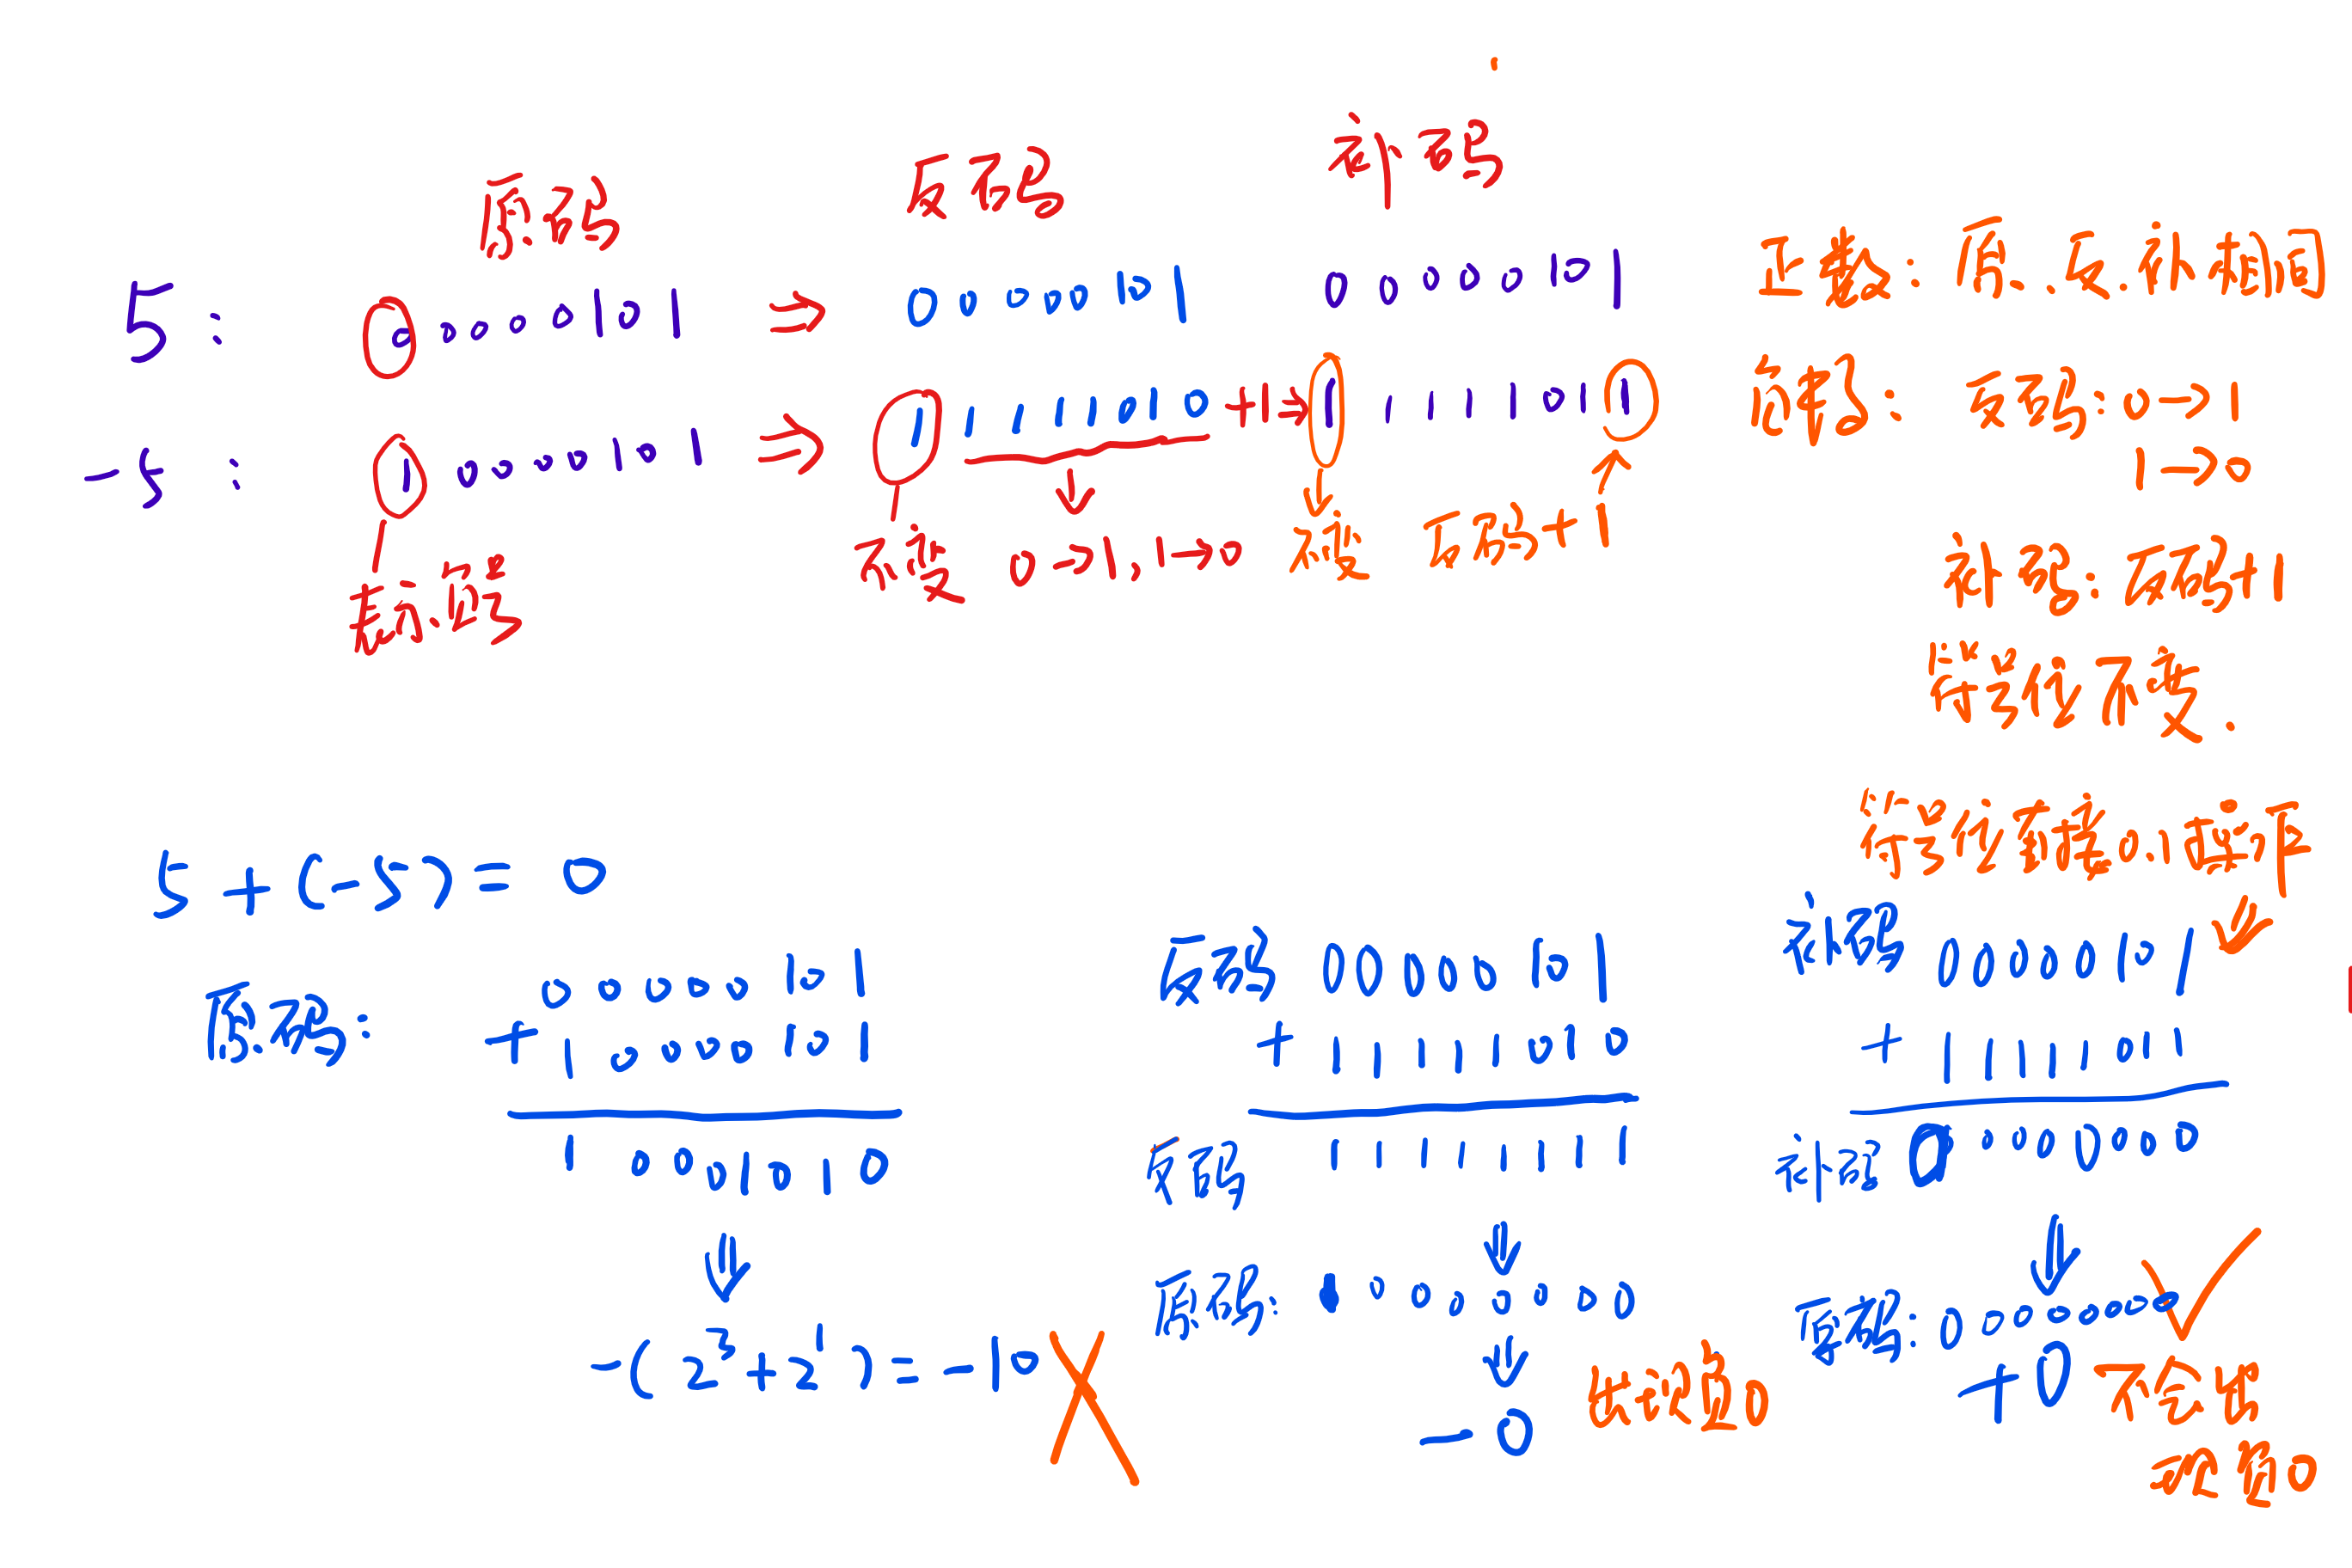 原码 反码 补码
5: 00000101 ⇒ 00000101 00000101
-5: 10000101 ⇒ 11111010 +1→ 11111011
表示符号
不变 0→1, 1→0
不变 反码+1
正数: 原.反.补相同
负数: 反码: 0→1
1→0
补码: 反码+1
符号位不变.
5+(-5)=0
原码:
00000101
+10000101
10001010
-(2³+2¹)=-10
反码 00000101
+11111010
反码 11111111
原码: 10000000
-0 出现负0
补码 00000101
+11111011
补码 00000000
原码: 00000000
+0 不会出
现负0